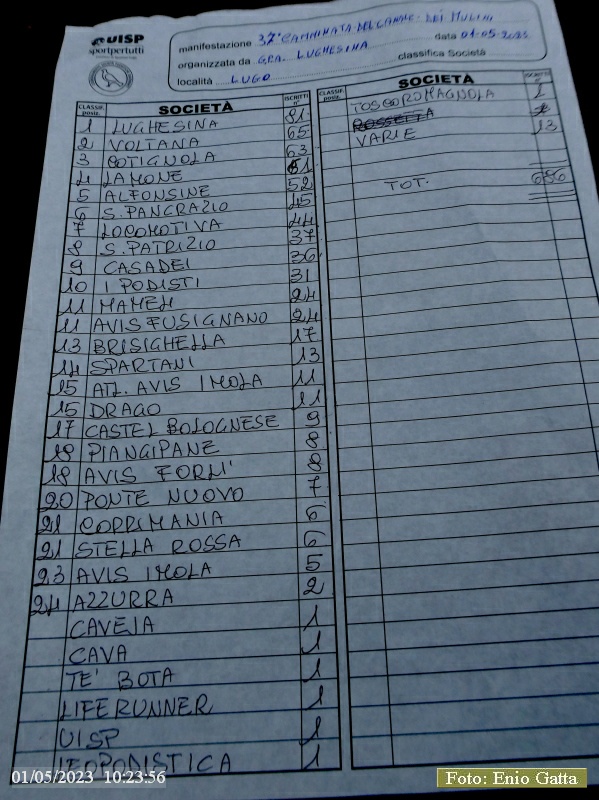 UISP
sportpertutti
manifestazione 37° CAMMINATA DEL CANALE DEI MULINI
organizzata da GPA. LUGHESINA data 01-05-2023
località LUGO classifica Società
CLASSIF. posiz. SOCIETÀ ISCRITTI n°
1 LUGHESINA 81
2 VOLTANA 65
3 COTIGNOLA 63
4 LAMONE 61
5 ALFONSINE 52
6 S. PANCRAZIO 45
7 LOCOMOTIVA 44
8 S. PATRIZIO 37
9 CASADEI 36
10 I PODISTI 31
11 MAMELI 24
11 AVIS FUSIGNANO 24
13 BRISIGHELLA 17
14 SPARTANI 13
15 ATL. AVIS IMOLA 11
15 DRAGO 11
17 CASTEL BOLOGNESE 9
18 PIANGIPANE 8
18 AVIS FORLI' 8
20 PONTE NUOVO 7
21 CORRIMANIA 6
21 STELLA ROSSA 6
23 AVIS IMOLA 5
24 AZZURRA 2
CAVEJA 1
CAVA 1
TE' BOTA 1
LIFERUNNER 1
UISP 1
LEOPODISTICA 1
CLASSIF. posiz. SOCIETÀ ISCRITTI n°
TOSCOROMAGNOLA 1
ROSSETTA
VARIE 13
TOT. 686
01/05/2023 10:23:56
Foto: Enio Gatta